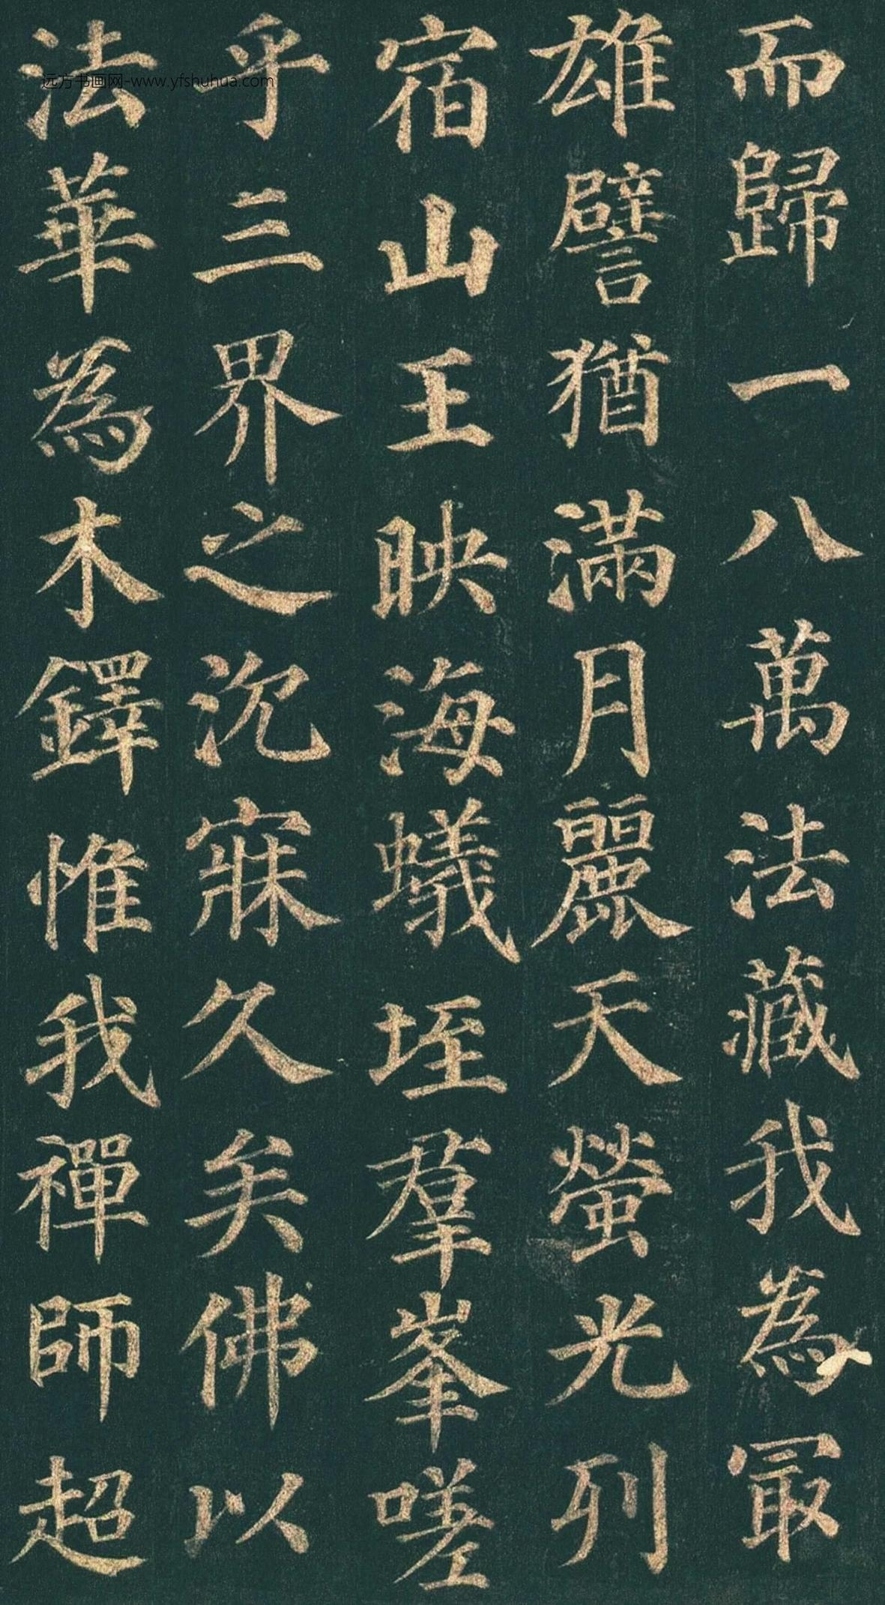 而歸一八萬法藏我為冣
雄譬猶滿月麗天螢光列
宿山王映海蟻垤羣峯嗟
乎三界之沉寐久矣佛以
法華為木鐸惟我禪師超
远方书画网-www.yfshuhua.com